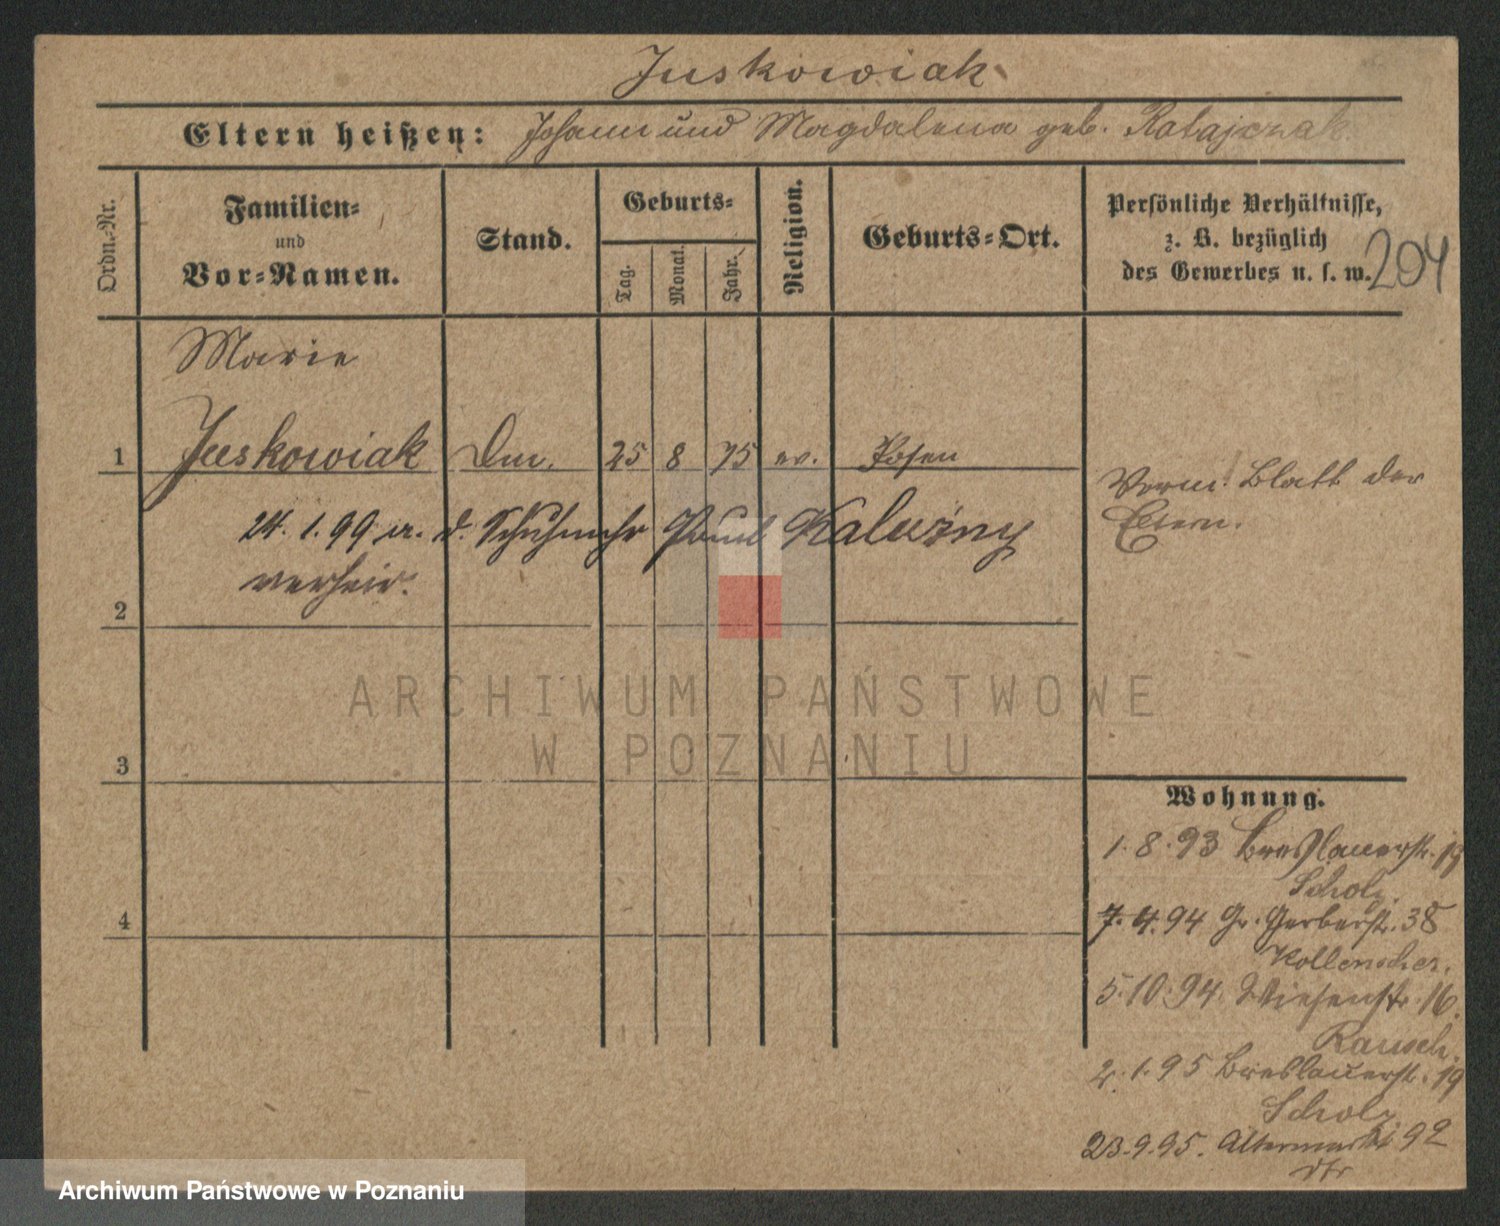 Juskowiak
Eltern heißen: Johann und Magdalena geb. Ratajczak
Ordn.-Nr.
Familien-
und
Vor-Namen.
Stand.
Geburts-
Tag.
Monat.
Jahr.
Religion.
Geburts-Ort.
Persönliche Verhältnisse,
z. B. bezüglich
des Gewerbes u. s. w.
204
Marie
1 Juskowiak 25 8 75 Posen
24. 1. 99 a. d. Schuhmchr Paul Kaluźny
verheir.
2
Blatt der
Eltern.
ARCHIWUM PAŃSTWOWE
W POZNANIU
3
4
Wohnung.
1. 8. 93 Breslauerstr. 19
Scholz
7. 4. 94 Gr. Gerberstr. 38
Kollenscher.
5. 10. 94 Wiesenstr. 16.
Rausch.
2. 1. 95 Breslauerstr. 19
Scholz
23. 9. 95. Altermarkt 92
Archiwum Państwowe w Poznaniu